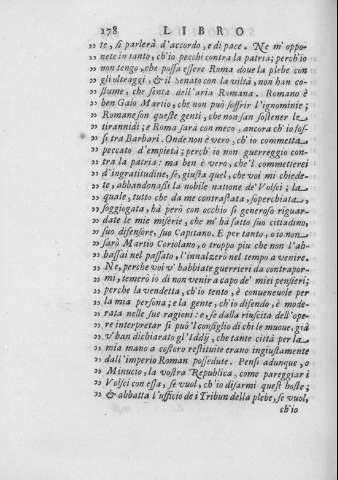 178 LIBRO
„ te, si parlerà d'accordo, e di pace. Ne m'oppo
„ nete in tanto, ch'io pecchi contra la patria; perch'io
„ non tengo, che possa essere Roma doue la plebe con
„ gli oltraggi, & il Senato con la viltà, non han co-
„ stume, che senta dell'aria Romana. Romano è
„ ben Gaio Martio, che non può soffrir l'ignominie;
„ Romane son queste genti, che non san sostener le
„ tirannidi; e Roma sarà con meco, ancora ch'io fos-
„ si tra Barbari. Onde non è vero, ch'io commetta
„ peccato d'empietà; perch'io non guerreggio con-
„ tra la patria: ma ben è vero, che l'commetterei
„ d'ingratitudine, se, giusta quel, che voi mi chiede-
„ te, abbandonassi la nobile natione de' Volsci; la
„ quale, tutto che da me contrastata, soperchiata,
„ soggiogata, hà però con occhio sì generoso riguar-
„ date le mie miserie, che m'hà fatto suo cittadino,
„ suo difensore, suo Capitano. E per tanto, o io non
„ sarò Martio Coriolano, o troppo più che non l'ab-
„ bassai nel passato, l'innalzerò nel tempo a venire.
„ Ne, perche voi v'habbiate guerrieri da contrapor-
„ mi, temerò io di non venire a capo de' miei pensieri;
„ perche la vendetta, ch'io tento, è conueneuole per
„ la mia persona; e la gente, ch'io difendo, è mode-
„ rata nelle sue ragioni: e, se dalla riuscita dell'ope-
„ re interpretar si può l'consiglio di chi le muoue, già
„ v'han dichiarato gl'Iddij, che tante città per la
„ mia mano a costoro restituite erano ingiustamente
„ dall'imperio Roman possedute. Pensi adunque, o
„ Minucio, la vostra Republica, come pareggiar i
„ Volsci con essa, se vuol, ch'io disarmi quest'hoste;
„ & abbatta l'ufficio de i Tribun della plebe, se vuol,
ch'io